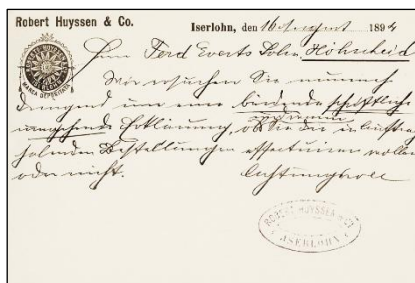 Robert Huyssen & Co.
Iserlohn, den 16 August 1894
Herrn Ferd Everts Sohn, Höhscheid
Wir ersuchen Sie nunmehr
dringend um eine bindende schriftliche
umgehende Erklärung, ob Sie die
Bestellungen effectuiren wollen
oder nicht.
Achtungsvoll
ROBERT HUYSSEN & Co
ISERLOHN